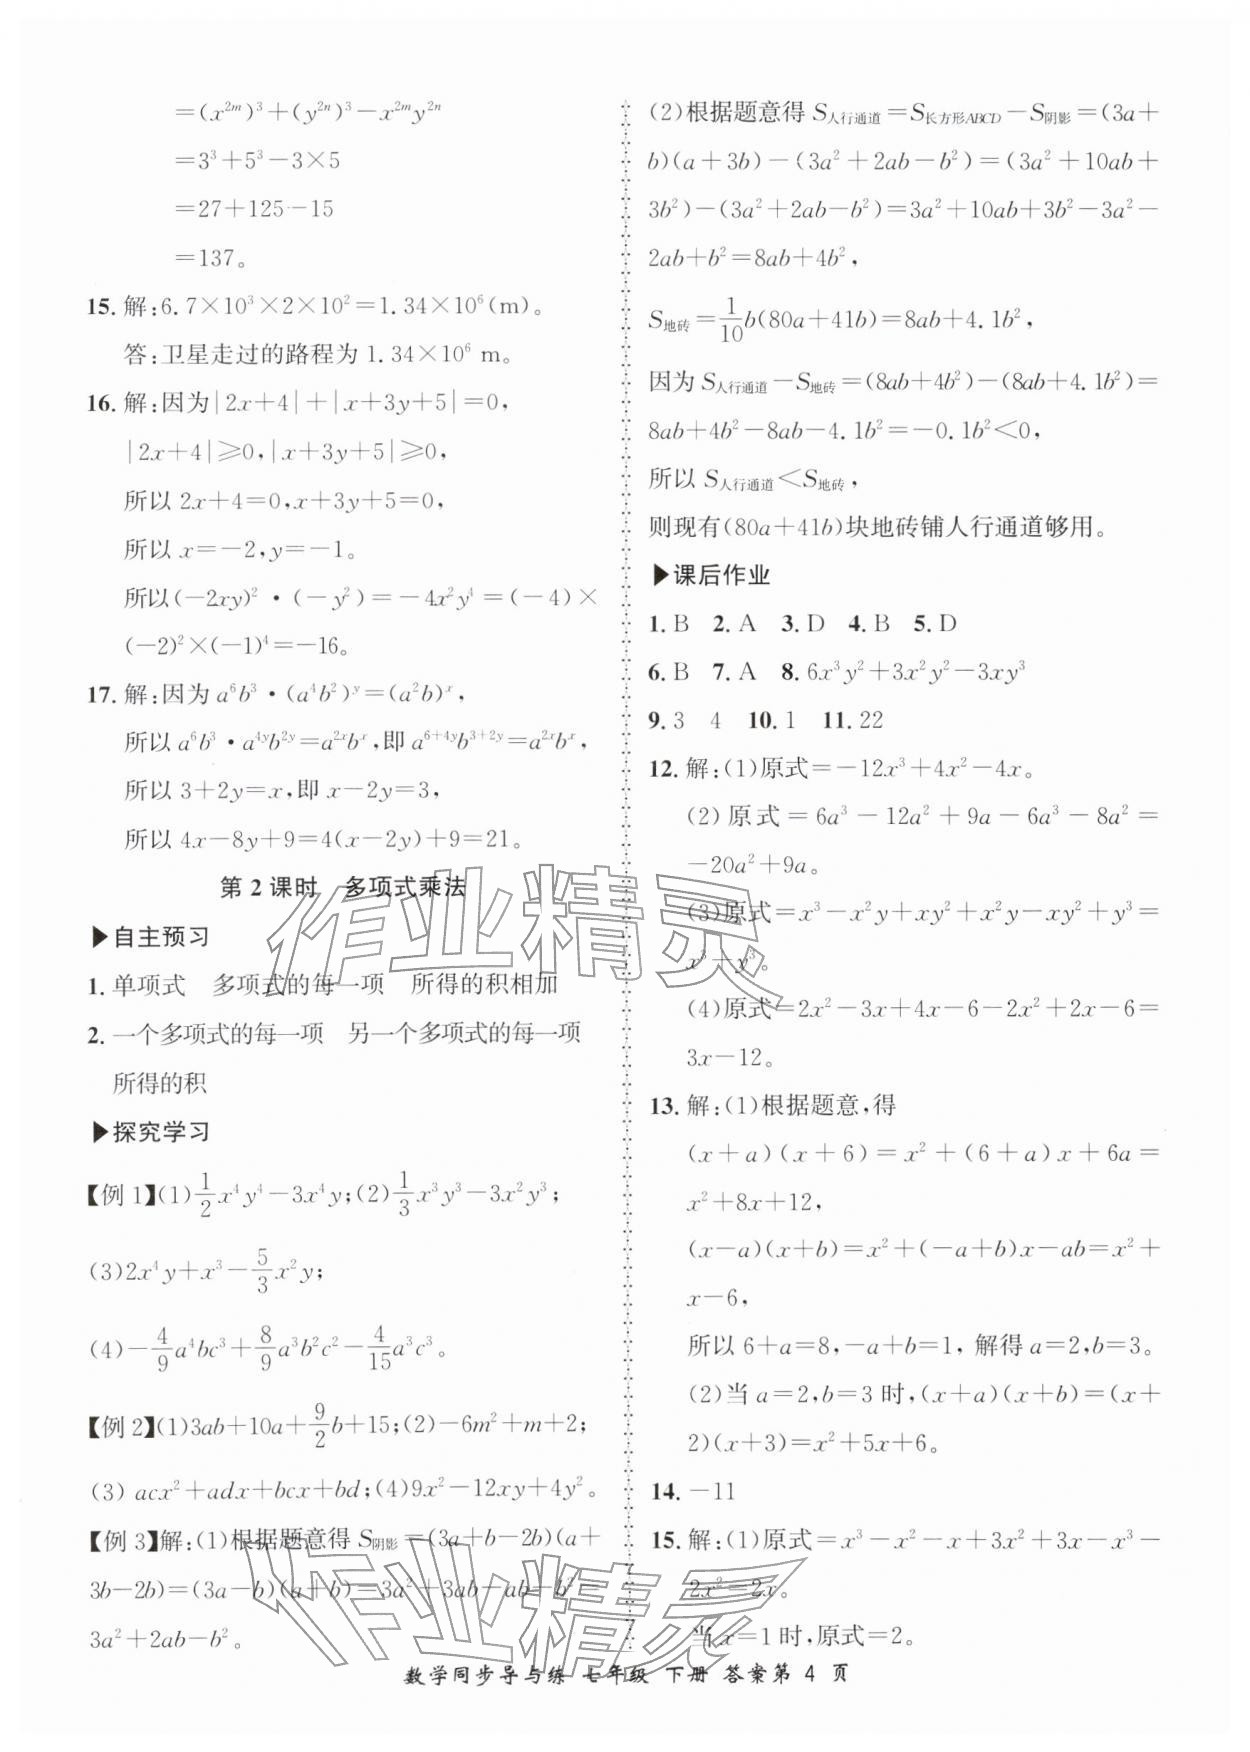 =(x²ᵐ)³+(y²ⁿ)³-x²ᵐy²ⁿ
=3³+5³-3×5
=27+125-15
=137。
15. 解:6.7×10³×2×10²=1.34×10⁶(m)。
答:卫星走过的路程为1.34×10⁶ m。
16. 解:因为|2x+4|+|x+3y+5|=0,
|2x+4|≥0,|x+3y+5|≥0,
所以2x+4=0,x+3y+5=0,
所以x=-2,y=-1。
所以(-2xy)²·(-y²)=-4x²y⁴=(-4)×
(-2)²×(-1)⁴=-16。
17. 解:因为a⁶b³·(a⁴b²)ʸ=(a²b)ˣ,
所以a⁶b³·a⁴ʸb²ʸ=a²ˣbˣ,即a⁶⁺⁴ʸb³⁺²ʸ=a²ˣbˣ,
所以3+2y=x,即x-2y=3,
所以4x-8y+9=4(x-2y)+9=21。
第2课时 多项式乘法
▶自主预习
1. 单项式 多项式的每一项 所得的积相加
2. 一个多项式的每一项 另一个多项式的每一项
所得的积
▶探究学习
【例1】(1)1/2x⁴y⁴-3x⁴y;(2)1/3x³y³-3x²y³;
(3)2x⁴y+x³-5/3x²y;
(4)-4/9a⁴bc³+8/9a³b²c²-4/15a³c³。
【例2】(1)3ab+10a+9/2b+15;(2)-6m²+m+2;
(3) acx²+adx+bcx+bd;(4)9x²-12xy+4y²。
【例3】解:(1)根据题意得S阴影=(3a+b-2b)(a+
3b-2b)=(3a-b)(a+b)=3a²+3ab-ab-b²=
3a²+2ab-b²。
(2)根据题意得S人行通道=S长方形ABCD-S阴影=(3a+
b)(a+3b)-(3a²+2ab-b²)=(3a²+10ab+
3b²)-(3a²+2ab-b²)=3a²+10ab+3b²-3a²-
2ab+b²=8ab+4b²,
S地砖=1/10b(80a+41b)=8ab+4.1b²,
因为S人行通道-S地砖=(8ab+4b²)-(8ab+4.1b²)=
8ab+4b²-8ab-4.1b²=-0.1b²<0,
所以S人行通道<S地砖,
则现有(80a+41b)块地砖铺人行通道够用。
▶课后作业
1. B 2. A 3. D 4. B 5. D
6. B 7. A 8. 6x³y²+3x²y²-3xy³
9. 3 4 10. 1 11. 22
12. 解:(1)原式=-12x³+4x²-4x。
(2)原式=6a³-12a²+9a-6a³-8a²=
-20a²+9a。
(3)原式=x³-x²y+xy²+x²y-xy²+y³=
x³+y³。
(4)原式=2x²-3x+4x-6-2x²+2x-6=
3x-12。
13. 解:(1)根据题意,得
(x+a)(x+6)=x²+(6+a)x+6a=
x²+8x+12,
(x-a)(x+b)=x²+(-a+b)x-ab=x²+
x-6,
所以6+a=8,-a+b=1,解得a=2,b=3。
(2)当a=2,b=3时,(x+a)(x+b)=(x+
2)(x+3)=x²+5x+6。
14. -11
15. 解:(1)原式=x³-x²-x+3x²+3x-x³-
2x²=2x。
当x=1时,原式=2。
数学同步导与练 七年级 下册 答案第 4 页
作业精灵
作业精灵